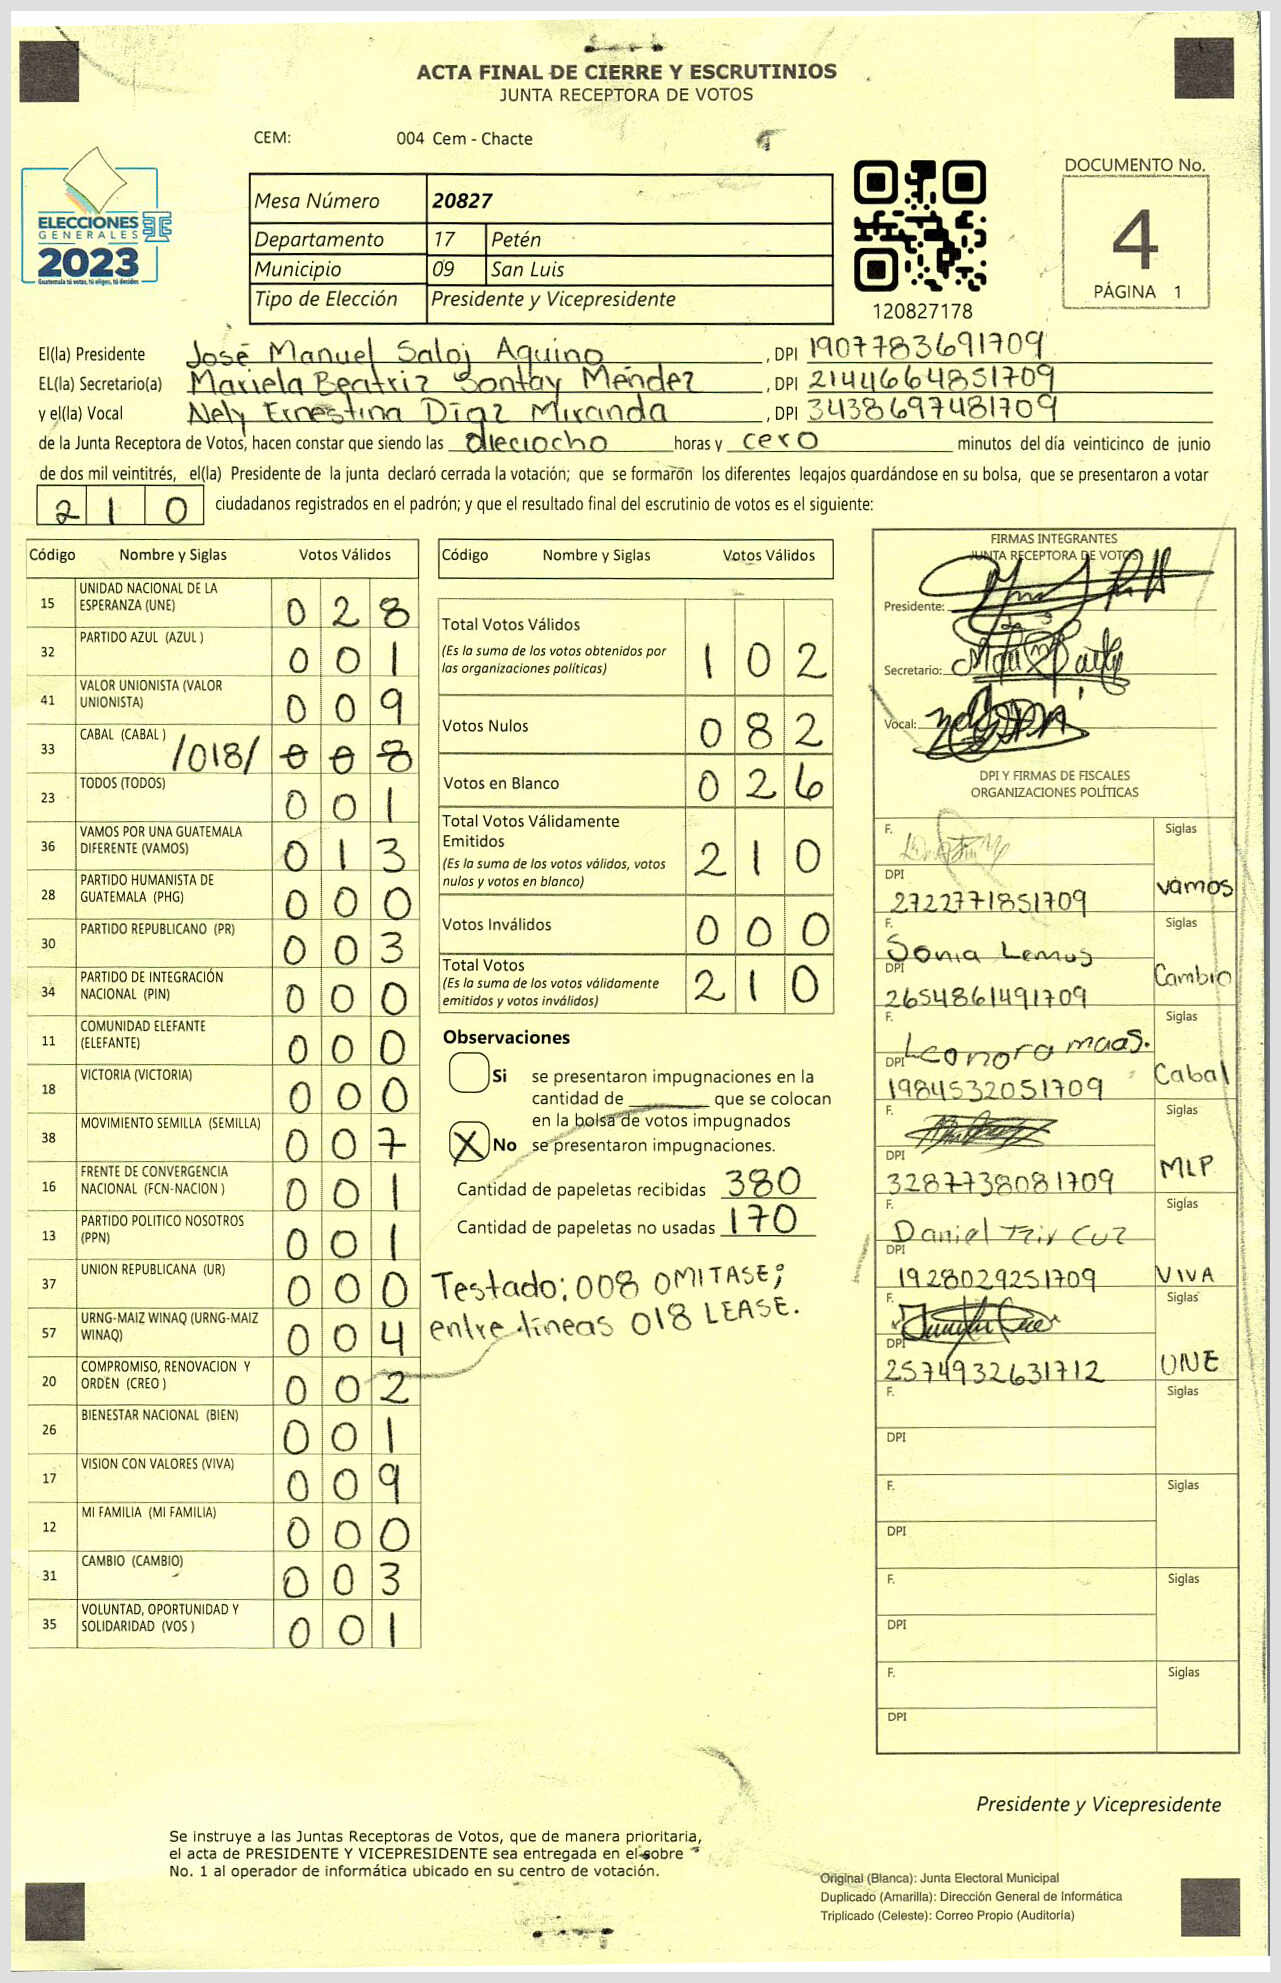 ACTA FINAL DE CIERRE Y ESCRUTINIOS
JUNTA RECEPTORA DE VOTOS
CEM: 004 Cem - Chacte
ELECCIONES
GENERALES
2023
Guatemala tú votas, tú eliges, tú decides
TSE
Mesa Número 20827
Departamento 17 Petén
Municipio 09 San Luis
Tipo de Elección Presidente y Vicepresidente
120827178
DOCUMENTO No.
4
PÁGINA 1
El(la) Presidente José Manuel Saloj Aquino , DPI 1907783691709
EL(la) Secretario(a) Mariela Beatriz Sontay Méndez , DPI 2144664851709
y el(la) Vocal Nely Ernestina Díaz Miranda , DPI 3438697481709
de la Junta Receptora de Votos, hacen constar que siendo las dieciocho horas y cero minutos del día veinticinco de junio
de dos mil veintitrés, el(la) Presidente de la junta declaró cerrada la votación; que se formarón los diferentes legajos quardándose en su bolsa, que se presentaron a votar
2 1 0 ciudadanos registrados en el padrón; y que el resultado final del escrutinio de votos es el siguiente:
Código Nombre y Siglas Votos Válidos
15 UNIDAD NACIONAL DE LA ESPERANZA (UNE) 0 2 8
32 PARTIDO AZUL (AZUL ) 0 0 1
41 VALOR UNIONISTA (VALOR UNIONISTA) 0 0 9
33 CABAL (CABAL ) /018/ 0 0 8
23 TODOS (TODOS) 0 0 1
36 VAMOS POR UNA GUATEMALA DIFERENTE (VAMOS) 0 1 3
28 PARTIDO HUMANISTA DE GUATEMALA (PHG) 0 0 0
30 PARTIDO REPUBLICANO (PR) 0 0 3
34 PARTIDO DE INTEGRACIÓN NACIONAL (PIN) 0 0 0
11 COMUNIDAD ELEFANTE (ELEFANTE) 0 0 0
18 VICTORIA (VICTORIA) 0 0 0
38 MOVIMIENTO SEMILLA (SEMILLA) 0 0 7
16 FRENTE DE CONVERGENCIA NACIONAL (FCN-NACION ) 0 0 1
13 PARTIDO POLITICO NOSOTROS (PPN) 0 0 1
37 UNION REPUBLICANA (UR) 0 0 0
57 URNG-MAIZ WINAQ (URNG-MAIZ WINAQ) 0 0 4
20 COMPROMISO, RENOVACION Y ORDEN (CREO ) 0 0 2
26 BIENESTAR NACIONAL (BIEN) 0 0 1
17 VISION CON VALORES (VIVA) 0 0 9
12 MI FAMILIA (MI FAMILIA) 0 0 0
31 CAMBIO (CAMBIO) 0 0 3
35 VOLUNTAD, OPORTUNIDAD Y SOLIDARIDAD (VOS ) 0 0 1
Código Nombre y Siglas Votos Válidos
Total Votos Válidos 1 0 2
(Es la suma de los votos obtenidos por
las organizaciones políticas)
Votos Nulos 0 8 2
Votos en Blanco 0 2 6
Total Votos Válidamente
Emitidos 2 1 0
(Es la suma de los votos válidos, votos
nulos y votos en blanco)
Votos Inválidos 0 0 0
Total Votos 2 1 0
(Es la suma de los votos válidamente
emitidos y votos inválidos)
Observaciones
Si se presentaron impugnaciones en la
cantidad de ______ que se colocan
en la bolsa de votos impugnados
X No se presentaron impugnaciones.
Cantidad de papeletas recibidas 380
Cantidad de papeletas no usadas 170
Testado: 008 OMITASE;
entre líneas 018 LEASE.
FIRMAS INTEGRANTES
JUNTA RECEPTORA DE VOTOS
Presidente:
Secretario:
Vocal:
DPI Y FIRMAS DE FISCALES
ORGANIZACIONES POLÍTICAS
F. Siglas
DPI 2722771851709 vamos
F. Sonia Lemus Siglas
DPI 2654861491709 Cambio
F. Leonora maas. Siglas
DPI 1984532051709 Cabal
F. Siglas
DPI 3287738081709 MLP
F. Daniel Siglas
DPI 1928029251709 VIVA
F. Siglas
DPI 2574932631712 UNE
F. Siglas
DPI
F. Siglas
DPI
F. Siglas
DPI
F. Siglas
DPI
Presidente y Vicepresidente
Se instruye a las Juntas Receptoras de Votos, que de manera prioritaria,
el acta de PRESIDENTE Y VICEPRESIDENTE sea entregada en el sobre
No. 1 al operador de informática ubicado en su centro de votación.
Original (Blanca): Junta Electoral Municipal
Duplicado (Amarilla): Dirección General de Informática
Triplicado (Celeste): Correo Propio (Auditoría)